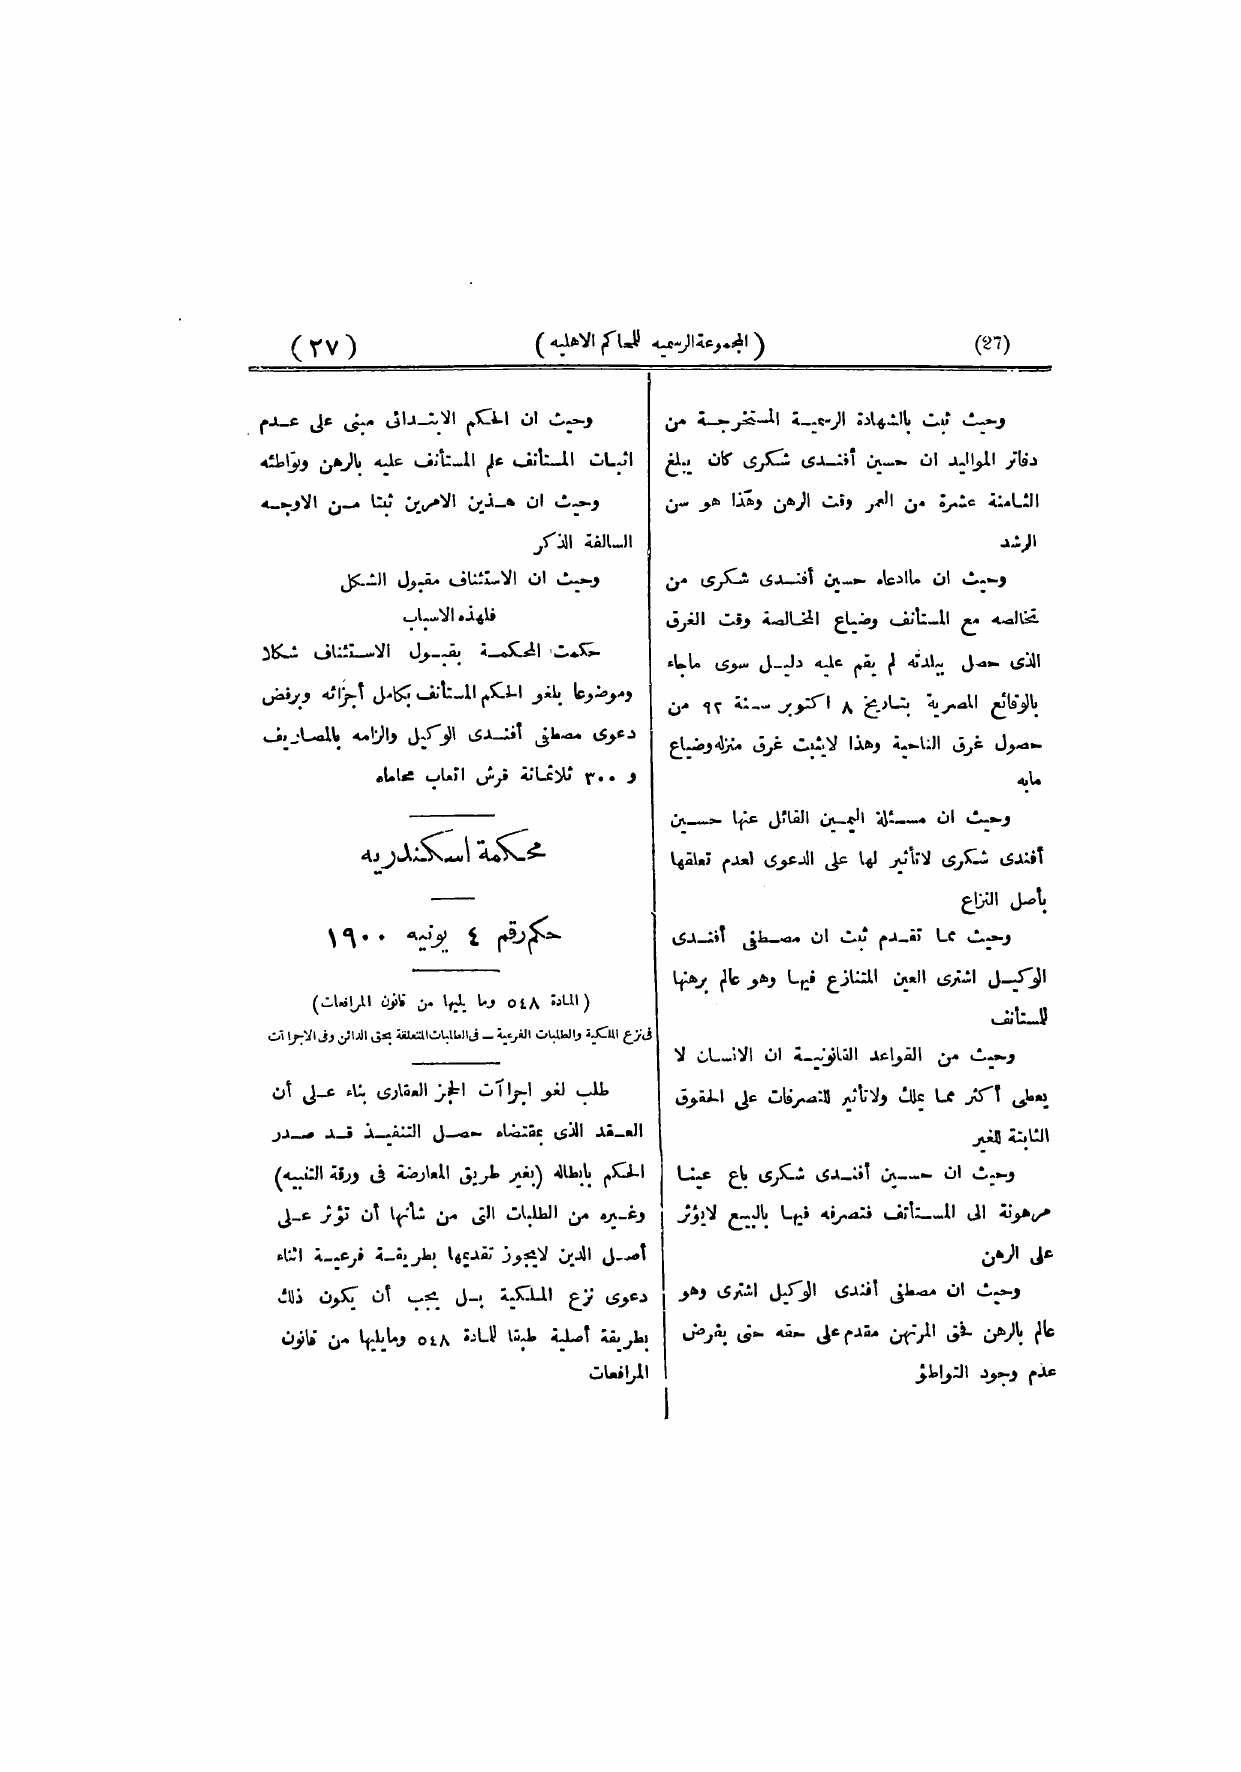 (27)
( المجموعة الرسميه للمحاكم الاهليه )
( ٢٧ )
وحيث ثبت بالشهادة الرسمية المستخرجة من
دفاتر المواليد ان حسين أفندى شكرى كان يبلغ
الثامنة عشرة من العمر وقت الرهن وهذا هو سن
الرشد
وحيث ان ماادعاه حسين أفندى شكرى من
تخالصه مع المستأنف وضياع المخالصة وقت الغرق
الذى حصل ببلدته لم يقم عليه دليل سوى ماجاء
بالوقائع المصرية بتاريخ ٨ اكتوبر سنة ٩٢ من
حصول غرق الناحية وهذا لايثبت غرق منزله وضياع
مابه
وحيث ان مسئلة اليمين القائل عنها حسين
أفندى شكرى لاتأثير لها على الدعوى لعدم تعلقها
بأصل النزاع
وحيث مما تقدم ثبت ان مصطفى أفندى
الوكيل اشترى العين المتنازع فيها وهو عالم برهنها
للمستأنف
وحيث من القواعد القانونية ان الانسان لا
يعطى أكثر مما يملك ولاتأثير للتصرفات على الحقوق
الثابتة للغير
وحيث ان حسين أفندى شكرى باع عينا
مرهونة الى المستأنف فتصرفه فيها بالبيع لايؤثر
على الرهن
وحيث ان مصطفى أفندى الوكيل اشترى وهو
عالم بالرهن فحق المرتهن مقدم على حقه حتى بفرض
عدم وجود التواطؤ
وحيث ان الحكم الابتدائى مبنى على عدم
اثبات المستأنف علم المستأنف عليه بالرهن وتواطئه
وحيث ان هذين الامرين ثبتا من الاوجه
السالفة الذكر
وحيث ان الاستئناف مقبول الشكل
فلهذه الاسباب
حكمت المحكمة بقبول الاستئناف شكلا
وموضوعا بلغو الحكم المستأنف بكامل أجزائه وبرفض
دعوى مصطفى أفندى الوكيل والزامه بالمصاريف
و ٣٠٠ ثلاثمائة قرش اتعاب محاماه
محكمة اسكندريه
حكم رقم ٤ يونيه ١٩٠٠
( المادة ٥٤٨ وما يليها من قانون المرافعات )
فى نزع الملكية والطلبات الفرعية ــ فى الطلبات المتعلقة بحق الدائن وفى الاجراآت
طلب لغو اجراآت الحجز العقارى بناء على أن
العقد الذى بمقتضاه حصل التنفيذ قد صدر
الحكم بابطاله (بغير طريق المعارضة فى ورقة التنبيه)
وغيره من الطلبات التى من شأنها أن تؤثر على
أصل الدين لايجوز تقديمها بطريقة فرعية اثناء
دعوى نزع الملكية بل يجب أن يكون ذلك
بطريقة أصلية طبقا للمادة ٥٤٨ ومايليها من قانون
المرافعات